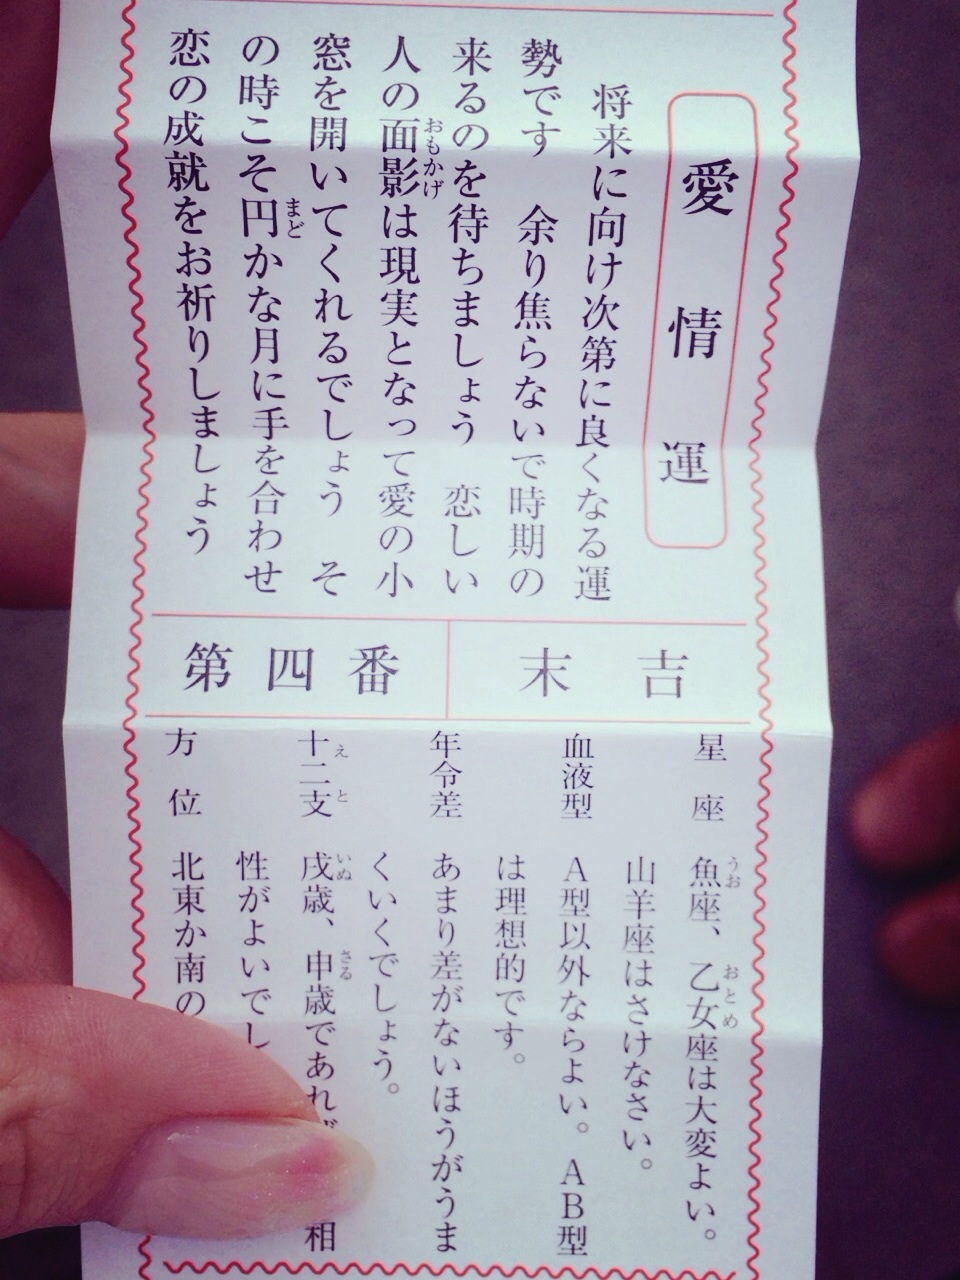 愛情運
将来に向け次第に良くなる運
勢です　余り焦らないで時期の
来るのを待ちましょう　恋しい
人の面影は現実となって愛の小
おもかげ
窓を開いてくれるでしょう　そ
の時こそ円かな月に手を合わせ
まど
恋の成就をお祈りしましょう
第四番
末吉
星座　魚座、乙女座は大変よい。
うお　おとめ
山羊座はさけなさい。
血液型　A型以外ならよい。AB型
は理想的です。
年令差　あまり差がないほうがうま
くいくでしょう。
十二支　戌歳、申歳であれば　相
えと　いぬ　さる
性がよいでし
方位　北東か南の